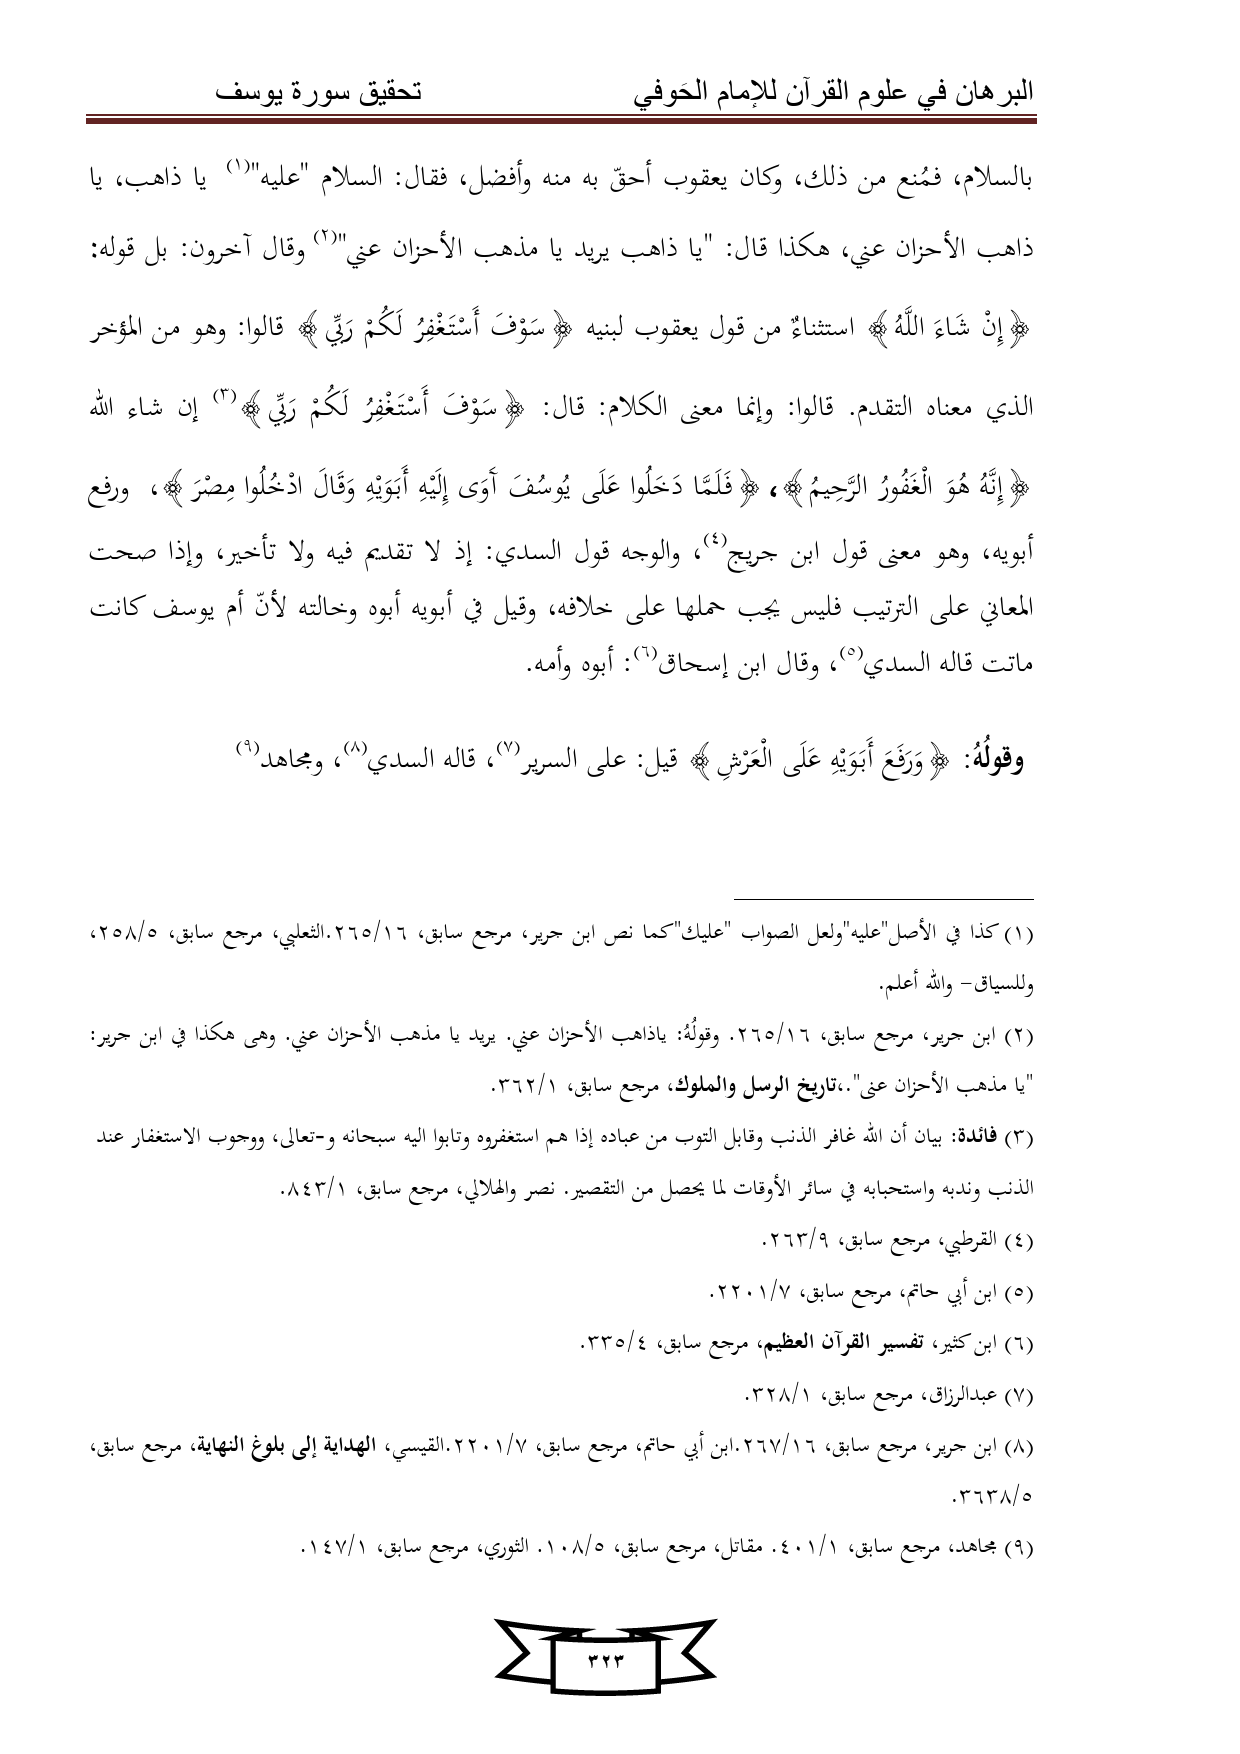 البرهان في علوم القرآن للإمام الحَوفي تحقيق سورة يوسف
بالسلام، فمُنع من ذلك، وكان يعقوب أحقّ به منه وأفضل، فقال: السلام "عليه"(١) يا ذاهب، يا
ذاهب الأحزان عني، هكذا قال: "يا ذاهب يريد يا مذهب الأحزان عني"(٢) وقال آخرون: بل قوله:
﴿إِنْ شَاءَ اللَّهُ﴾ استثناءٌ من قول يعقوب لبنيه ﴿سَوْفَ أَسْتَغْفِرُ لَكُمْ رَبِّي﴾ قالوا: وهو من المؤخر
الذي معناه التقدم. قالوا: وإنما معنى الكلام: قال: ﴿سَوْفَ أَسْتَغْفِرُ لَكُمْ رَبِّي﴾(٣) إن شاء الله
﴿إِنَّهُ هُوَ الْغَفُورُ الرَّحِيمُ﴾، ﴿فَلَمَّا دَخَلُوا عَلَى يُوسُفَ آَوَى إِلَيْهِ أَبَوَيْهِ وَقَالَ ادْخُلُوا مِصْرَ﴾، ورفع
أبويه، وهو معنى قول ابن جريج(٤)، والوجه قول السدي: إذ لا تقديم فيه ولا تأخير، وإذا صحت
المعاني على الترتيب فليس يجب حملها على خلافه، وقيل في أبويه أبوه وخالته لأنّ أم يوسف كانت
ماتت قاله السدي(٥)، وقال ابن إسحاق(٦): أبوه وأمه.
وقولُهُ: ﴿وَرَفَعَ أَبَوَيْهِ عَلَى الْعَرْشِ﴾ قيل: على السرير(٧)، قاله السدي(٨)، ومجاهد(٩)
(١) كذا في الأصل"عليه"ولعل الصواب "عليك"كما نص ابن جرير، مرجع سابق، ٢٦٥/١٦.الثعلبي، مرجع سابق، ٢٥٨/٥،
وللسياق– والله أعلم.
(٢) ابن جرير، مرجع سابق، ٢٦٥/١٦. وقولُهُ: ياذاهب الأحزان عني. يريد يا مذهب الأحزان عني. وهى هكذا في ابن جرير:
"يا مذهب الأحزان عنى".،تاريخ الرسل والملوك، مرجع سابق، ٣٦٢/١.
(٣) فائدة: بيان أن الله غافر الذنب وقابل التوب من عباده إذا هم استغفروه وتابوا اليه سبحانه و-تعالى، ووجوب الاستغفار عند
الذنب وندبه واستحبابه في سائر الأوقات لما يحصل من التقصير. نصر والهلالي، مرجع سابق، ٨٤٣/١.
(٤) القرطبي، مرجع سابق، ٢٦٣/٩.
(٥) ابن أبي حاتم، مرجع سابق، ٢٢٠١/٧.
(٦) ابن كثير، تفسير القرآن العظيم، مرجع سابق، ٣٣٥/٤.
(٧) عبدالرزاق، مرجع سابق، ٣٢٨/١.
(٨) ابن جرير، مرجع سابق، ٢٦٧/١٦.ابن أبي حاتم، مرجع سابق، ٢٢٠١/٧.القيسي، الهداية إلى بلوغ النهاية، مرجع سابق،
٣٦٣٨/٥.
(٩) مجاهد، مرجع سابق، ٤٠١/١. مقاتل، مرجع سابق، ١٠٨/٥. الثوري، مرجع سابق، ١٤٧/١.
٣٢٣